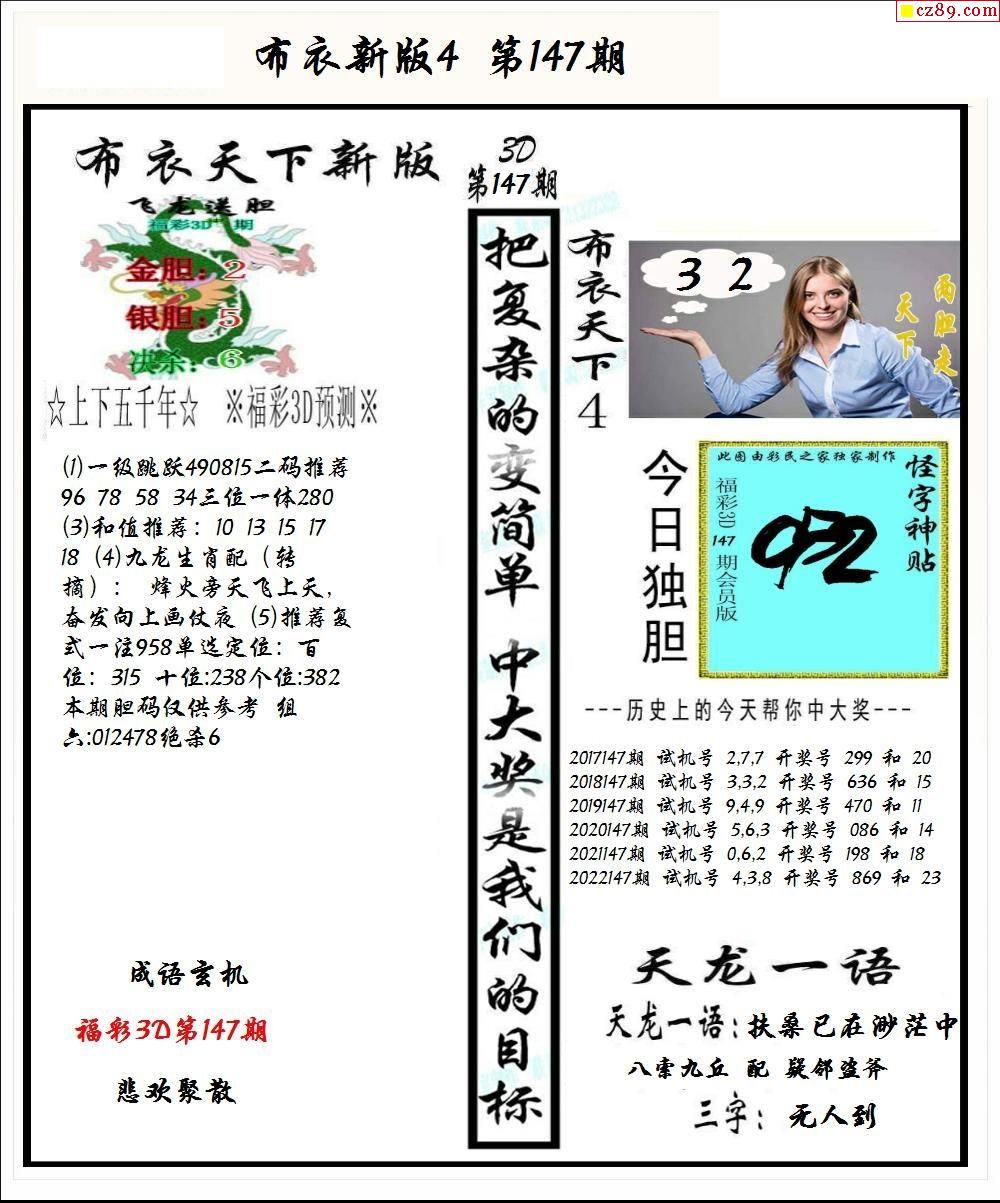 cz89.com
布衣新版4 第147期
布衣天下新版
飞龙送胆
福彩3D 期
金胆：2
银胆：5
决杀：6
☆上下五千年☆ ※福彩3D预测※
⑴一级跳跃490815二码推荐
96 78 58 34三位一体280
⑶和值推荐：10 13 15 17
18 ⑷九龙生肖配（转
摘）： 烽火旁天飞上天，
奋发向上画仗夜 ⑸推荐复
式一注958单选定位：百
位：315 十位:238个位:382
本期胆码仅供参考 组
六:012478绝杀6
成语玄机
福彩3D第147期
悲欢聚散
3D
第147期
把复杂的变简单 中大奖是我们的目标
布衣天下4
3 2
两胆走
天下
今日独胆
此图由彩民之家独家制作
怪字神贴
福彩3D 147 期会员版
---历史上的今天帮你中大奖---
2017147期 试机号 2,7,7 开奖号 299 和 20
2018147期 试机号 3,3,2 开奖号 636 和 15
2019147期 试机号 9,4,9 开奖号 470 和 11
2020147期 试机号 5,6,3 开奖号 086 和 14
2021147期 试机号 0,6,2 开奖号 198 和 18
2022147期 试机号 4,3,8 开奖号 869 和 23
天龙一语
天龙一语：扶桑已在渺茫中
八索九丘 配 疑邻盗斧
三字： 无人到